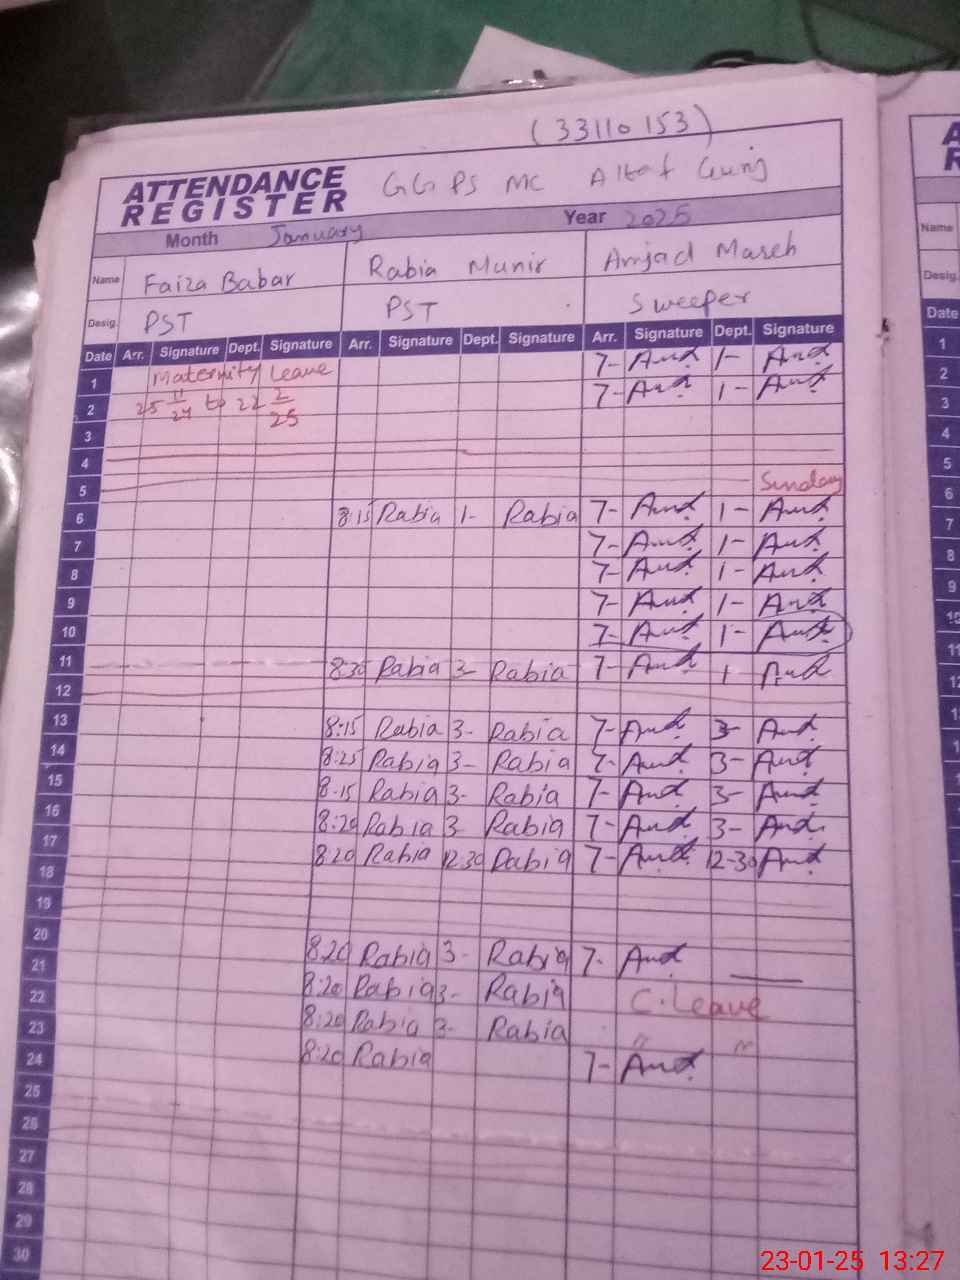 (33110153)
ATTENDANCE REGISTER GGPS MC Altaf Gunj
Month January Year 2025
Name Faiza Babar Rabia Munir Amjad Maseh
Desig. PST PST Sweeper
Date Arr. Signature Dept. Signature Arr. Signature Dept. Signature Arr. Signature Dept. Signature
1 Maternity Leave 7- 1-
2 25 11/24 to 22 2/25 7- 1-
3
4
5 Sunday
6 8:15 Rabia 1- Rabia 7- 1-
7 7- 1-
8 7- 1-
9 7- 1-
10 7- 1-
11 8:30 Rabia 3- Rabia 7- 1
12
13 8:15 Rabia 3- Rabia 7- 3-
14 8:25 Rabia 3- Rabia 7- 3-
15 8-15 Rabia 3- Rabia 7- 3-
16 8:20 Rabia 3- Rabia 7- 3-
17 8:20 Rabia 12-30 Rabia 7- 12-30
18
19
20 8:20 Rabia 3- Rabia 7-
21 8:20 Rabia 3- Rabia C. Leave
22 8:20 Rabia 3- Rabia " "
23 8:20 Rabia 7-
24
25
26
27
28
29
30
Name
Desig.
Date
1
2
3
4
5
6
7
8
9
10
11
12
23-01-25 13:27